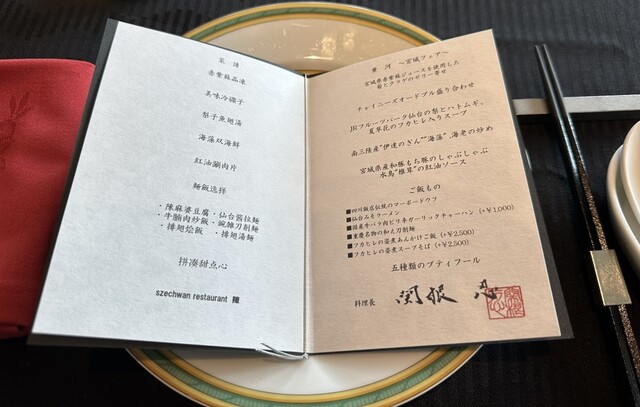 菜譜
赤紫蘇品凍
美味冷碟子
梨子魚翅湯
海藻双海鮮
紅油涮肉片
麺飯选择
・陳麻婆豆腐・仙台醤拉麺
・牛腩肉炒飯・豌雑刀削麺
・排翅烩飯 ・排翅湯麺
拼凑甜点心
szechwan restaurant 陳
黄河 ～宮城フェア～
宮城県産赤紫蘇ジュースを使用した
岩とクラゲのゼリー寄せ
チャイニーズオードブル盛り合わせ
JRフルーツパーク仙台の梨とハトムギ、
夏草花のフカヒレ入りスープ
南三陸産"伊達のぎん""海藻"、海老の炒め
宮城県産和豚もち豚のしゃぶしゃぶ
水鳥"椎茸"の紅油ソース
ご飯もの
■四川飯店伝統のマーボードウフ
■仙台みそラーメン
■国産牛バラ肉ピリ辛ガーリックチャーハン（+￥1,000）
■重慶名物の和え刀削麺
■フカヒレの姿煮あんかけご飯（+￥2,500）
■フカヒレの姿煮スープそば（+￥2,500）
五種類のプティフール
料理長 関根